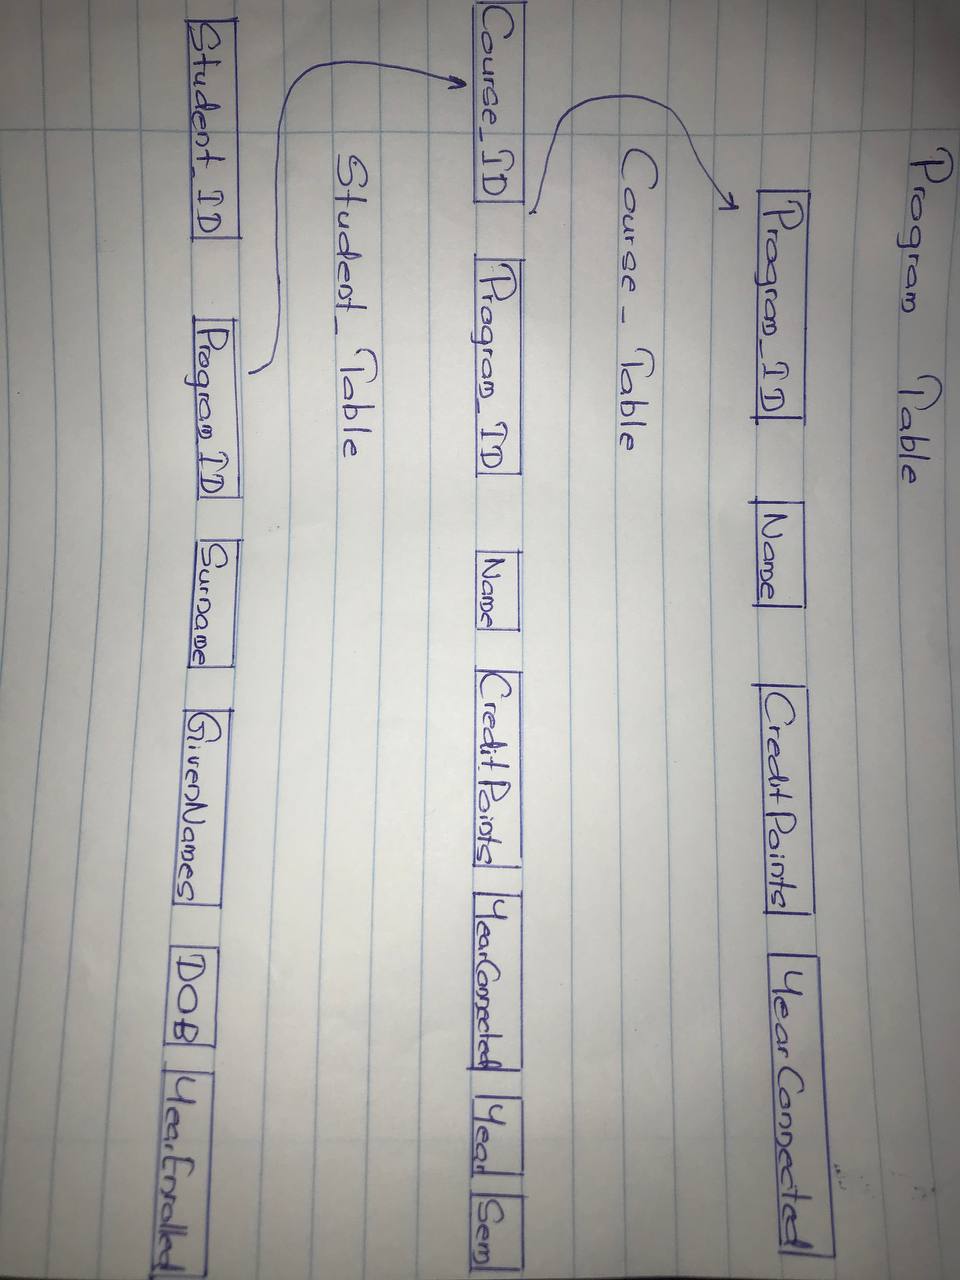 Program Table
Program_ID Name CreditPoints YearConnected
Course_Table
Course_ID Program_ID Name CreditPoints YearConnected Year Sem
Student_Table
Student_ID Program_ID Surname GivenNames DOB YearEnrolled